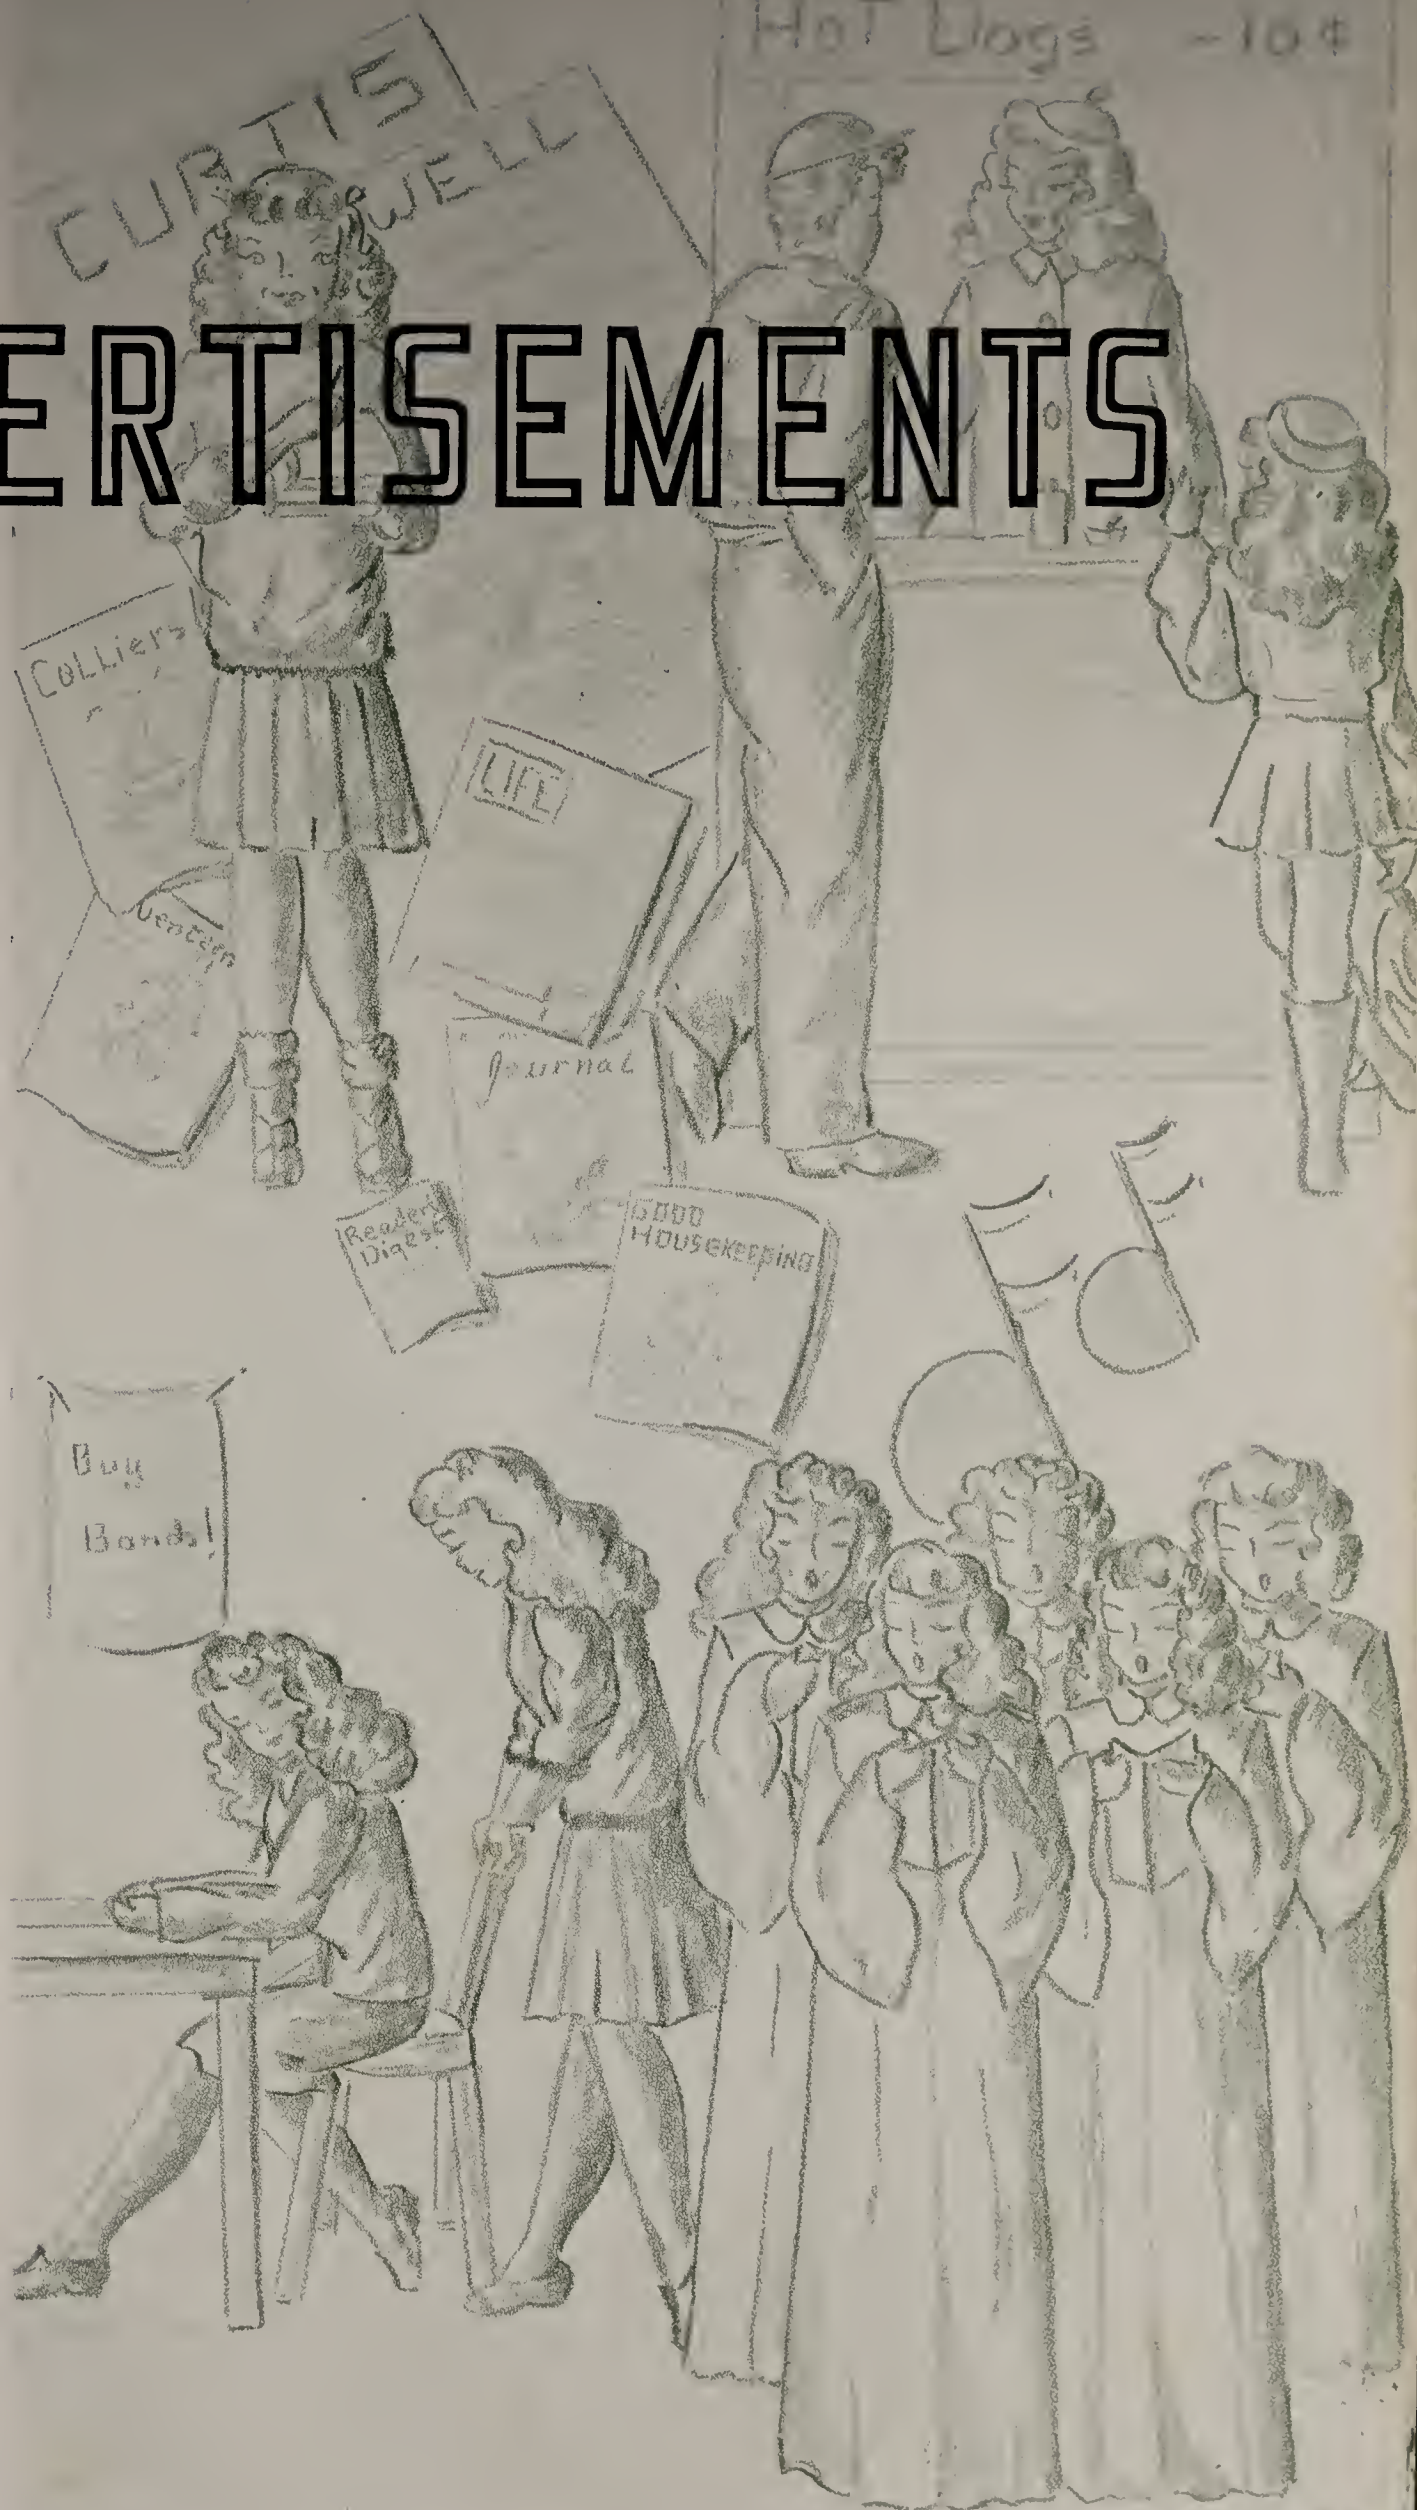 HoT Dogs -10¢
CURTIS
WELL
ERTISEMENTS
COLLiers
LIFE
venteen
Journal
Readers
Digest
GOOD
HOUSEKEEpiNG
Buy
Bonds!